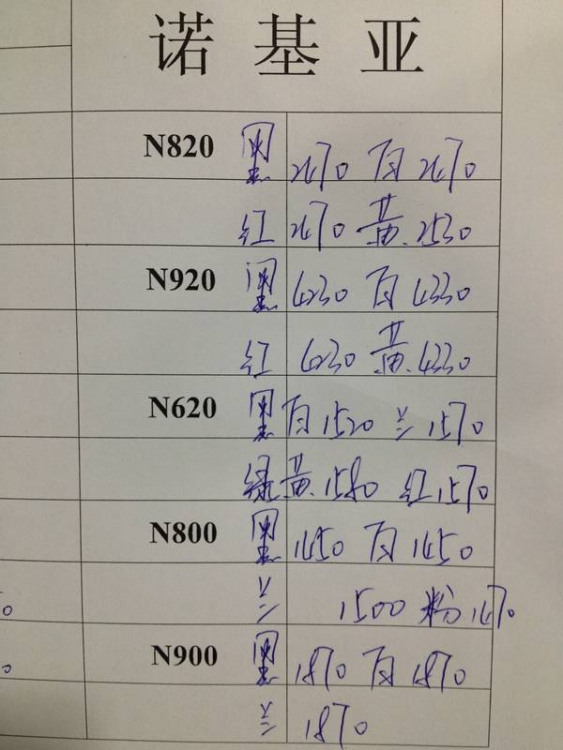 诺基亚
N820 黑 2470 白 2470
红 2470 黄 2530
N920 黑 4230 白 4330
红 4230 黄 4330
N620 黑白 1520 兰 1570
绿黄 1580 红 1570
N800 黑 1450 白 1450
兰 1500 粉 1470
N900 黑 1870 白 1870
兰 1870